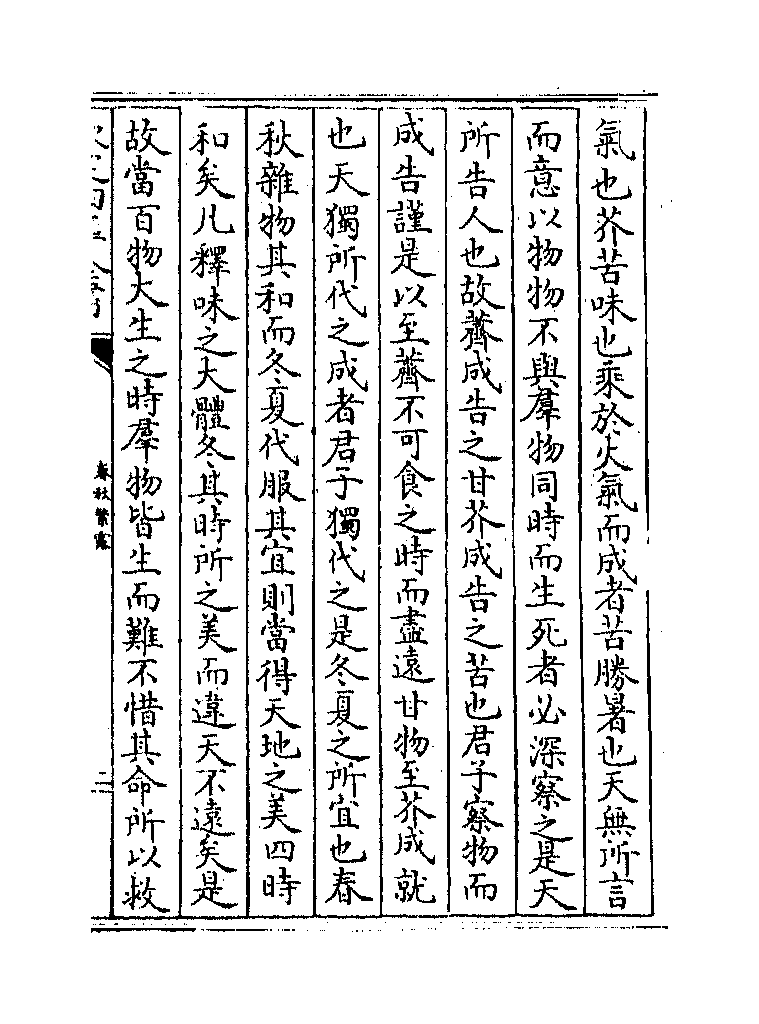 氣也芥苦味也乘於火氣而成者苦勝暑也天無所言
而意以物物不與羣物同時而生死者必深察之是天
所告人也故薺成告之甘芥成告之苦也君子察物而
成告謹是以至薺不可食之時而盡遠甘物至芥成就
也天獨所代之成者君子獨代之是冬夏之所宜也春
秋雜物其和而冬夏代服其宜則當得天地之美四時
和矣凡釋味之大體冬其時所之美而違天不遠矣是
故當百物大生之時羣物皆生而難不惜其命所以救
春秋繁露
二